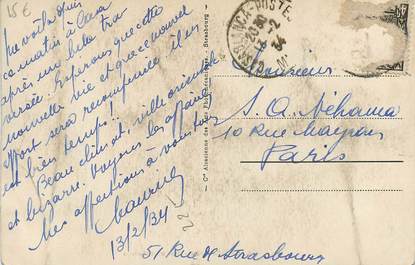 15€
Me voilà
ce matin à Casa
après une belle tra
versée. Espérons que cette
nouvelle vie et ce nouvel
effort sera récompensé il en
est bien temps!!
Beau climat, ville orientale
et bizarre. Voyons les affaires!
Mes affections à vous tous
Maurice
13/2/34
CASABLANCA-POSTE
20 30
13-2
34
Cie Alsacienne des Arts Photomécaniques, Strasbourg
Monsieur
S. A. Nehama
10 Rue
Paris
51 Rue de Strasbourg